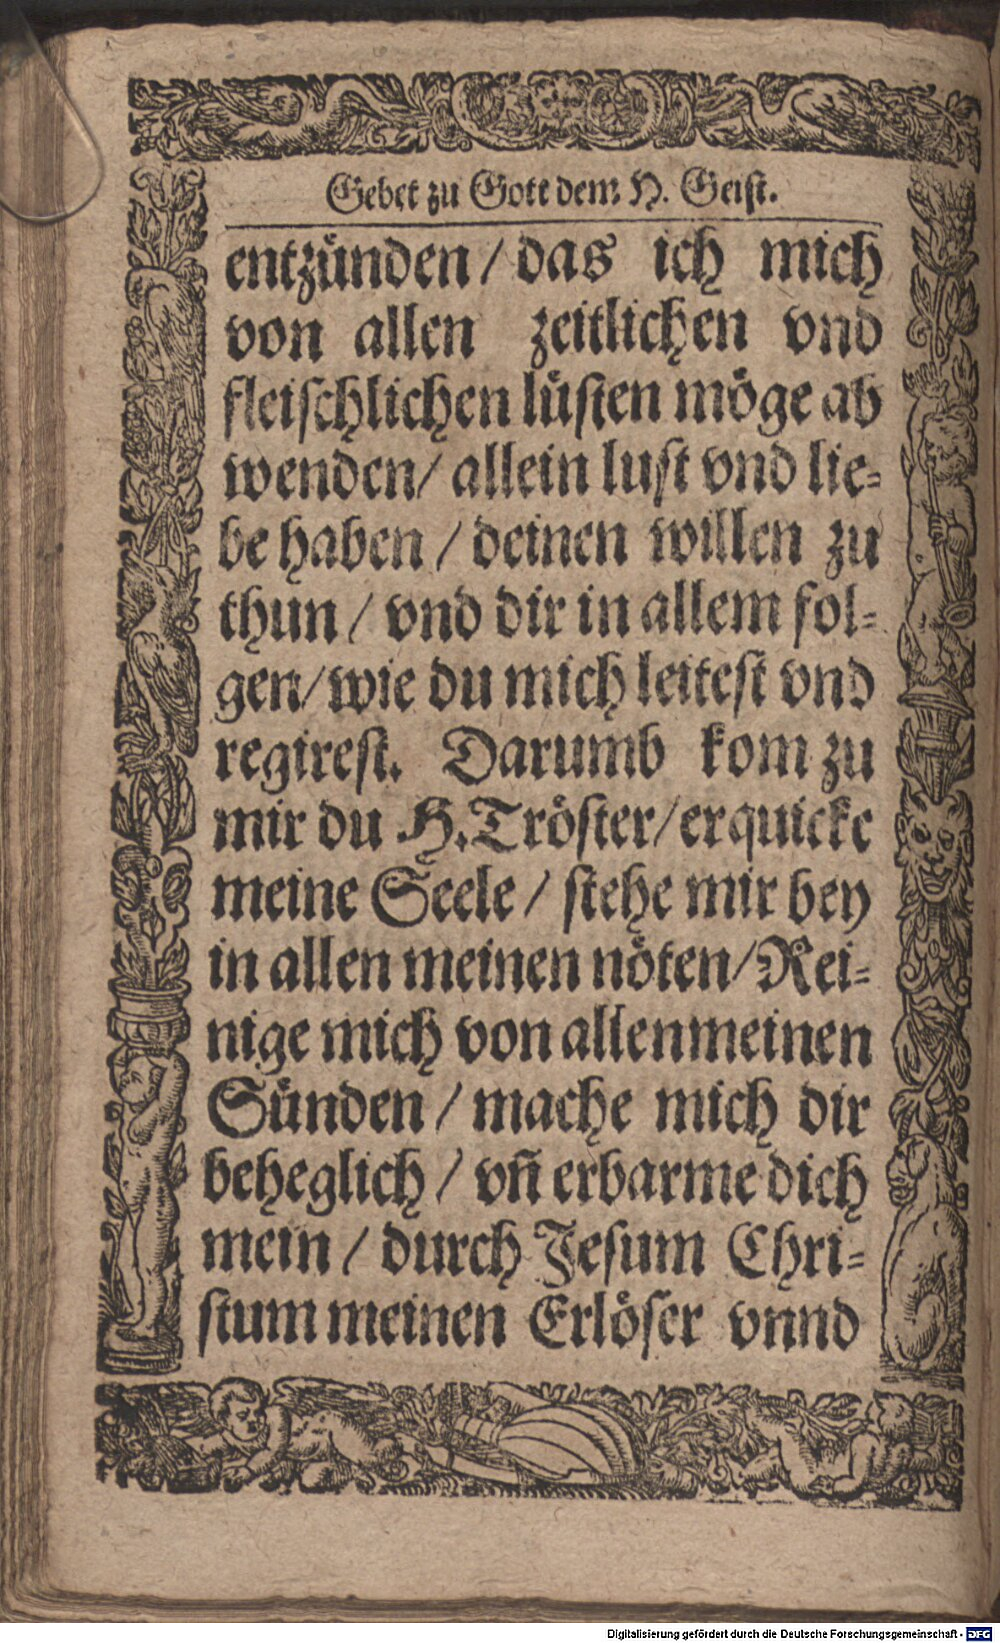 Gebet zu Gott dem H. Geist.
entzünden / das ich mich
von allen zeitlichen vnd
fleischlichen lüsten möge ab
wenden / allein lust vnd lie-
be haben / deinen willen zu
thun / vnd dir in allem fol-
gen / wie du mich leitest vnd
regirest. Darumb kom zu
mir du H. Tröster / erquicke
meine Seele / stehe mir bey
in allen meinen nöten / Rei-
nige mich von allen meinen
Sünden / mache mich dir
beheglich / vñ erbarme dich
mein / durch Jesum Chri-
stum meinen Erlöser vnnd
Digitalisierung gefördert durch die Deutsche Forschungsgemeinschaft - DFG